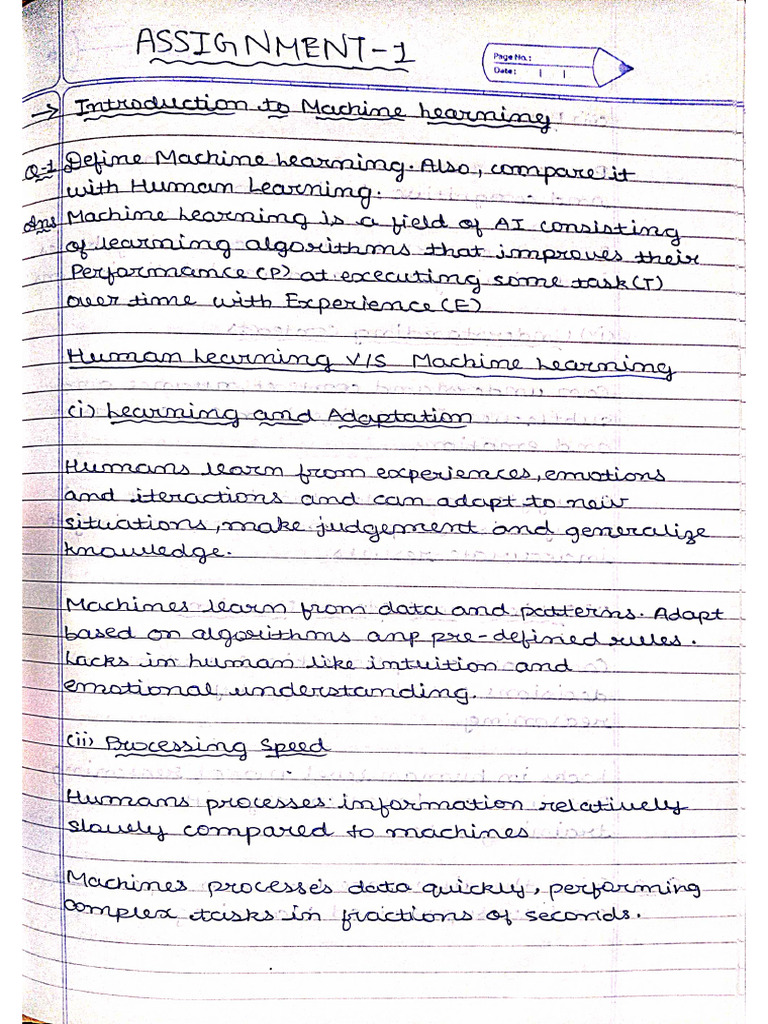 ASSIGNMENT-1
Page No.:
Date:
→ Introduction to Machine Learning
Q-1 Define Machine Learning. Also, compare it
with Human Learning.
Ans Machine Learning is a field of AI consisting
of learning algorithms that improves their
Performance (P) at executing some task (T)
over time with Experience (E)
Human Learning V/S Machine Learning
(i) Learning and Adaptation
Humans learn from experiences, emotions
and iteractions and can adapt to new
situations, make judgement and generalize
knowledge.
Machines learn from data and patterns. Adapt
based on algorithms anp pre-defined rules.
Lacks in human like intuition and
emotional understanding.
(ii) Processing Speed
Humans processes information relatively
slowely compared to machines
Machines processes data quickly, performing
complex tasks in fractions of seconds.